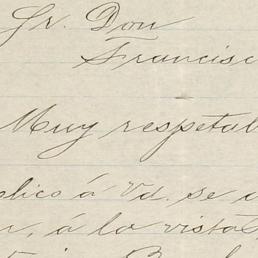 Sr. Don
Francisc
Muy respetab
plico á Vd. se
n, á la vista